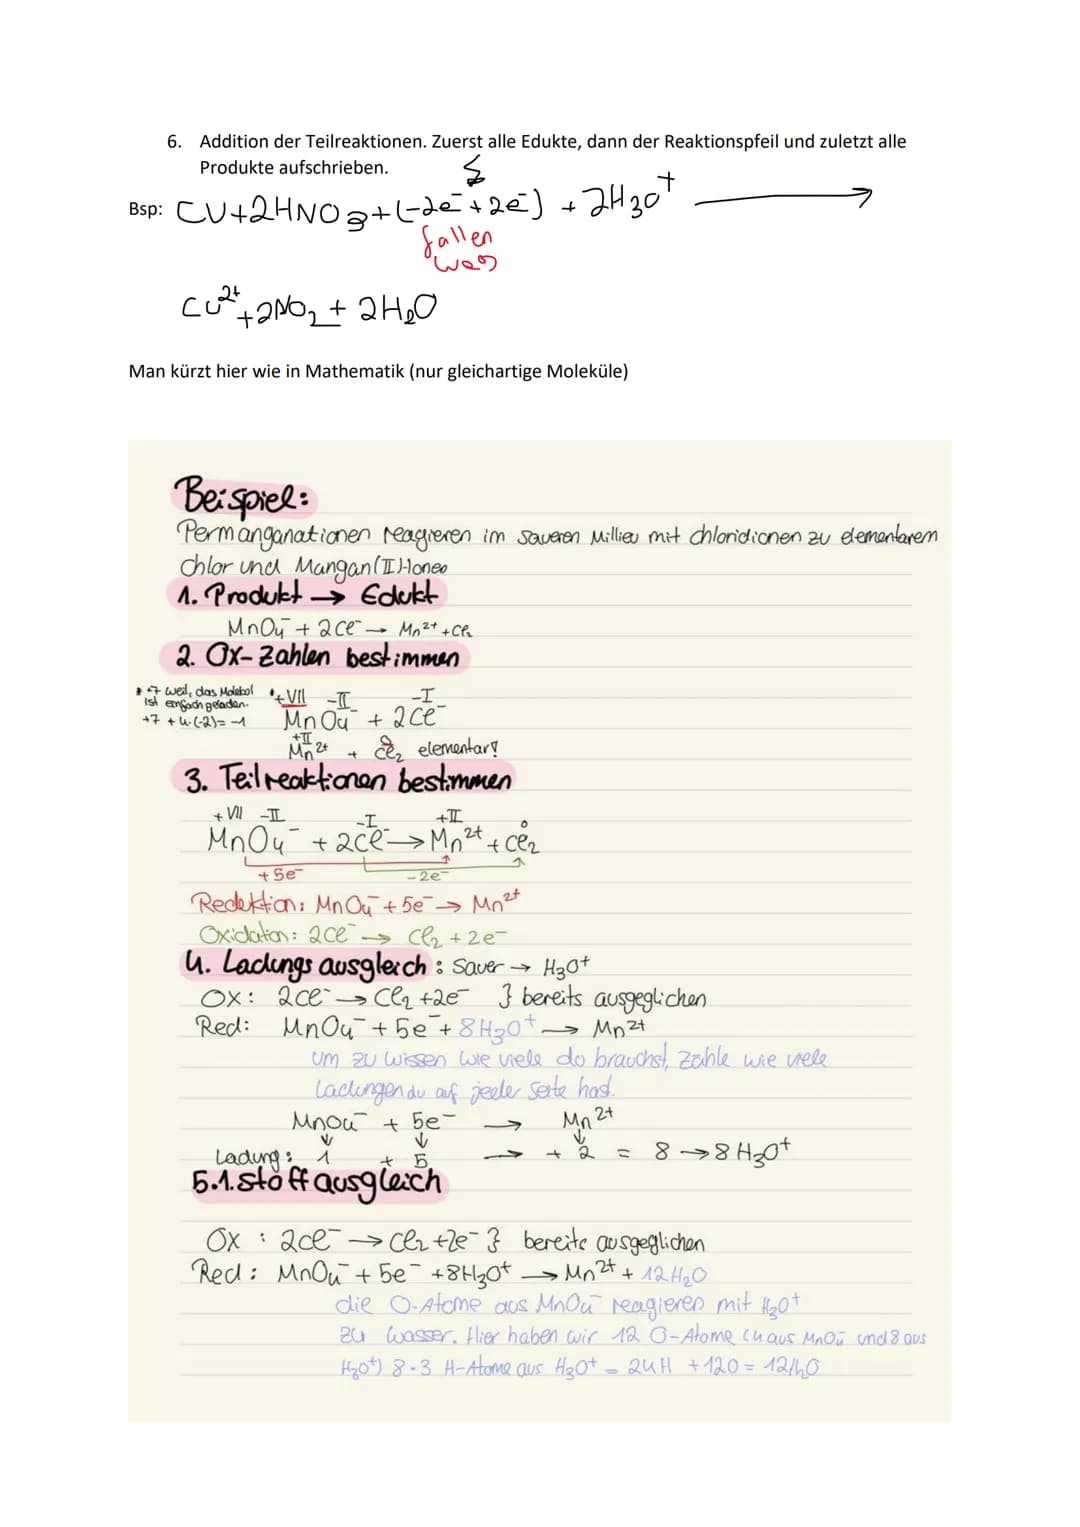 6. Addition der Teilreaktionen. Zuerst alle Edukte, dann der Reaktionspfeil und zuletzt alle
Produkte aufschrieben.
Bsp: CU+2HNO3+(-2e⁻+2e⁻) + 2H3O⁺ ⟶
fallen
weg
Cu²⁺+2NO₂ + 2H₂O
Man kürzt hier wie in Mathematik (nur gleichartige Moleküle)
Beispiel:
Permanganationen reagieren im Saueren Millieu mit chloridionen zu elementarem
Chlor und Mangan(II)-Ionen
1. Produkt → Edukt
MnO₄⁻ + 2Cl⁻ → Mn²⁺ + Cl₂
2. Ox-Zahlen bestimmen
* +7 weil, das Molekül
ist einfach geladen.
+7 + 4·(-2)= -1
*+VII -II -I
MnO₄⁻ + 2Cl⁻
+II 0
Mn²⁺ + Cl₂ elementar!
3. Teilreaktionen bestimmen
+VII -II -I +II 0
MnO₄⁻ + 2Cl⁻ → Mn²⁺ + Cl₂
+5e⁻ -2e⁻
Reduktion: MnO₄⁻ + 5e⁻ → Mn²⁺
Oxidation: 2Cl⁻ → Cl₂ + 2e⁻
4. Ladungsausgleich : Sauer → H₃O⁺
OX: 2Cl⁻ → Cl₂ +2e⁻ } bereits ausgeglichen
Red: MnO₄⁻ + 5e⁻ + 8H₃O⁺ → Mn²⁺
um zu wissen wie viele du brauchst, zähle wie viele
Ladungen du auf jeder Seite hast.
MnO₄⁻ + 5e⁻ → Mn²⁺
Ladung: 1 + 5 → + 2 = 8 → 8 H₃O⁺
5.1. stoffausgleich
OX : 2Cl⁻ → Cl₂ +2e⁻ } bereits ausgeglichen
Red: MnO₄⁻ + 5e⁻ +8H₃O⁺ → Mn²⁺ + 12H₂O
die O-Atome aus MnO₄⁻ reagieren mit H₃O⁺
zu Wasser. Hier haben wir 12 O-Atome (4 aus MnO₄⁻ und 8 aus
H₃O⁺) 8·3 H-Atome aus H₃O⁺ = 24H +12O = 12H₂O